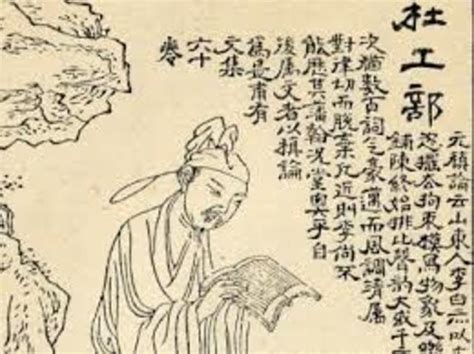 杜工部
元稹論云山東人李白亦以
恣擺去拘束模寫物象及
鋪陳終始排比聲韵大或千
次猶數百詞气豪邁而風調清属
對律切而脫棄凡近則李尚不
能歷其藩翰况堂奥乎自
後属文者以稹論
為是甫有
文集
六十
卷